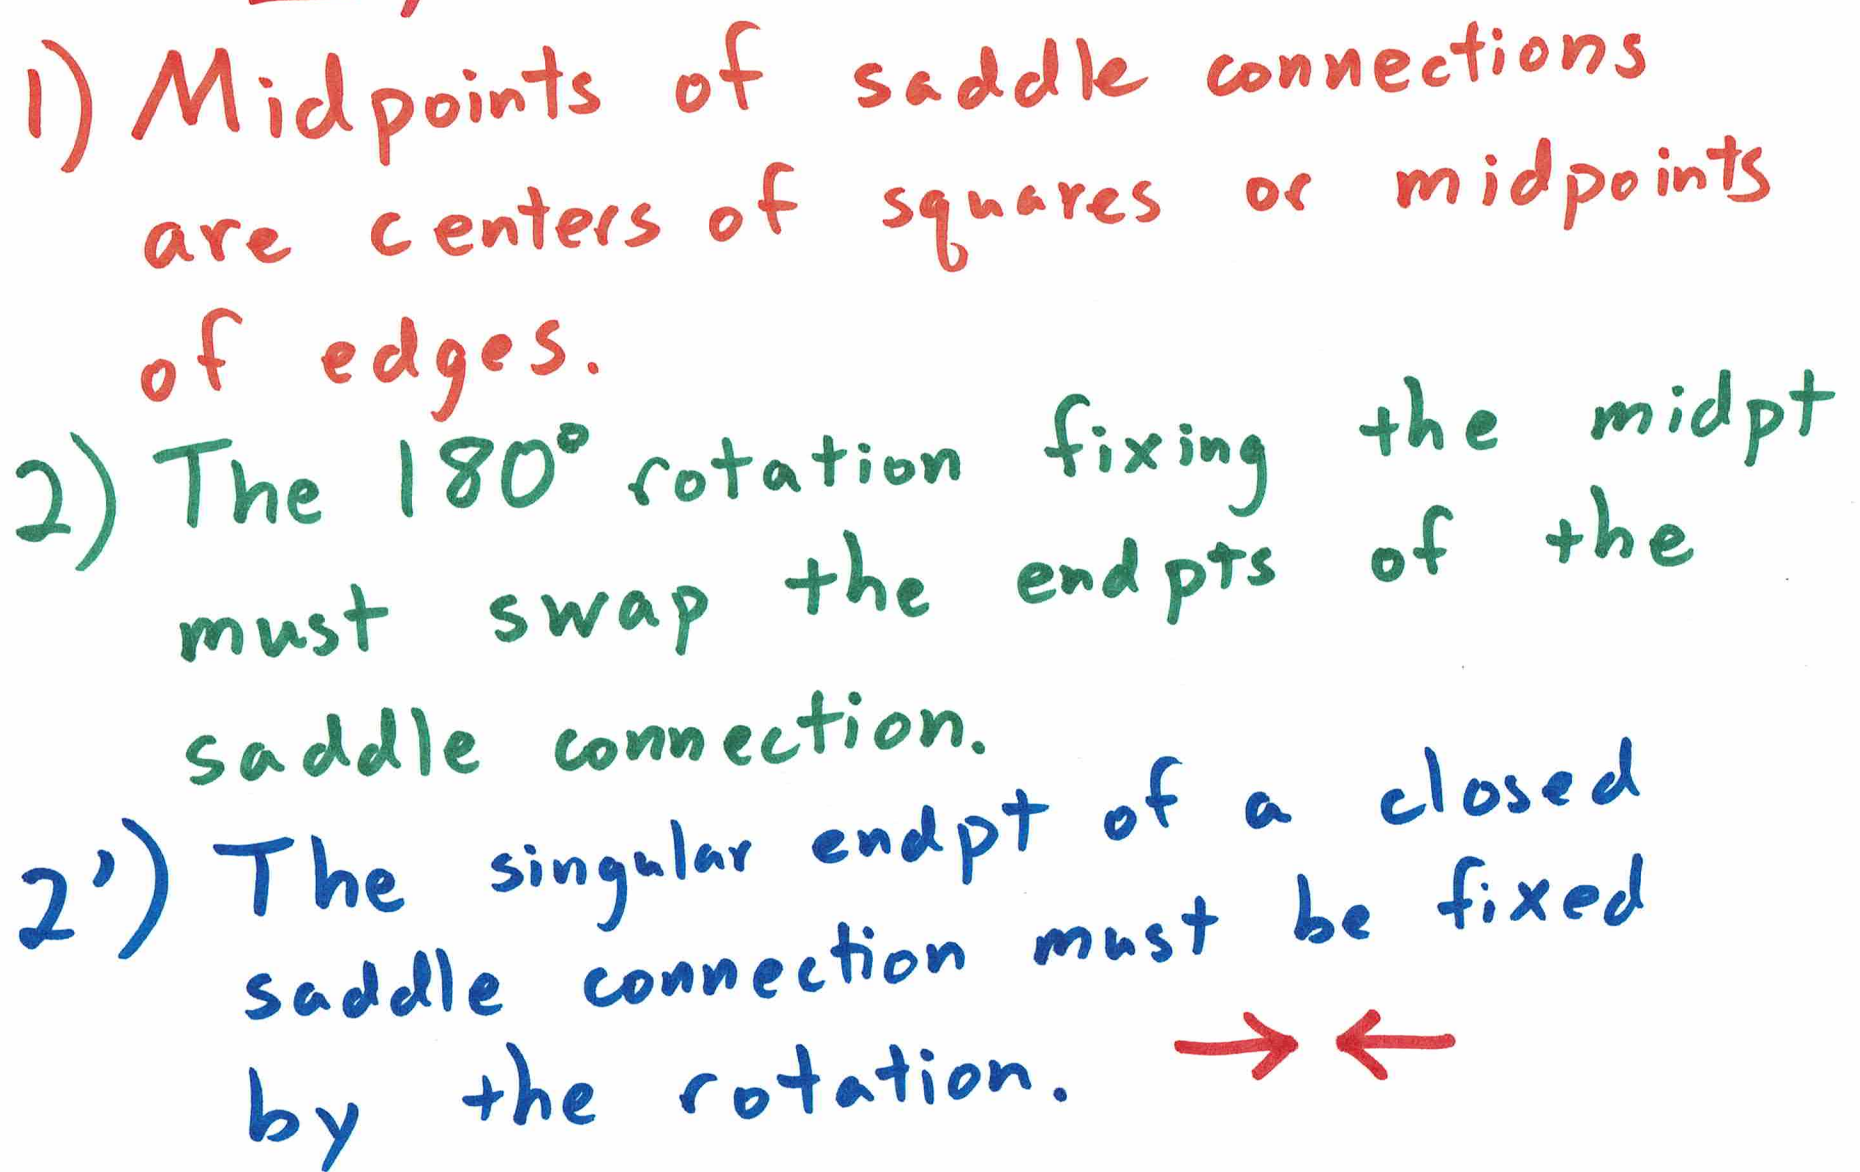 1) Midpoints of saddle connections
are centers of squares or midpoints
of edges.
2) The 180° rotation fixing the midpt
must swap the endpts of the
saddle connection.
2') The singular endpt of a closed
saddle connection must be fixed
by the rotation. →←